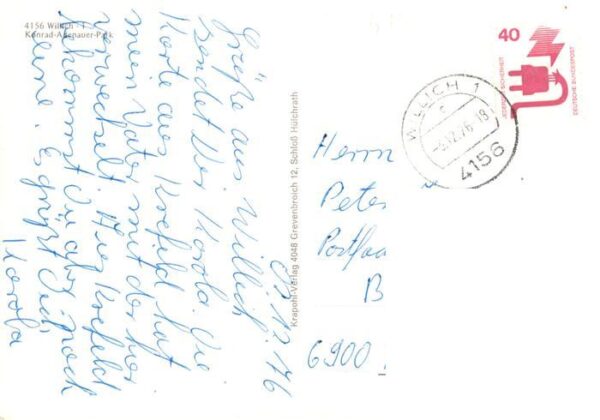 4156 Willich - 1
Konrad-Adenauer-Park
02.12.76
Grüße aus Willich
sendet Dir Karola. Die
Karte aus Krefeld hat
mein Vater mit der hier
verwechselt. Aus Krefeld
bekommst Du aber noch
eine. Es grüßt Dich
Karola
Krapohl-Verlag 4048 Grevenbroich 12, Schloß Hülchrath
40
JEDERZEIT SICHERHEIT
DEUTSCHE BUNDESPOST
WILLICH 1
c
-2.12.76-18
4156
Herrn
Peter
Postfac
B
6900